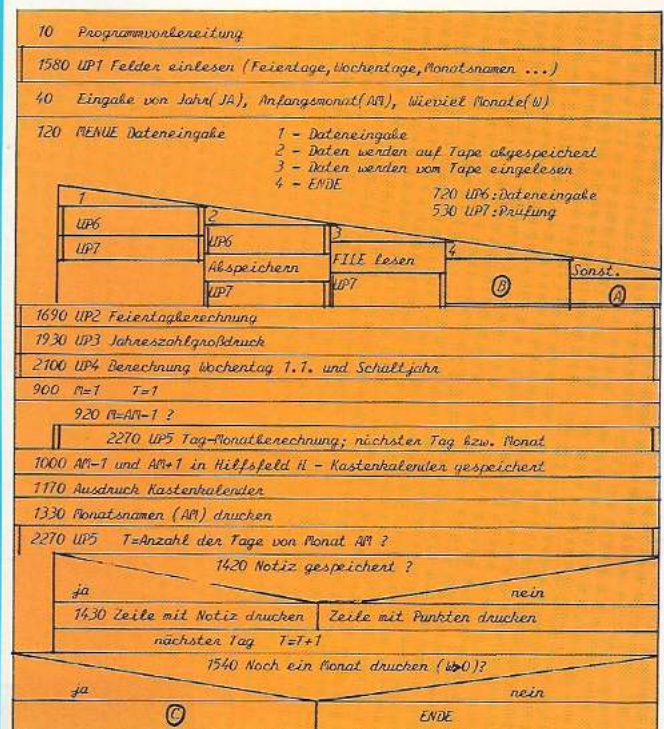 10 Programmvorbereitung
1580 UP1 Felder einlesen (Feiertage, Wochentage, Monatsnamen ...)
40 Eingabe von Jahr(JA), Anfangsmonat(AM), Wieviel Monate(W)
120 MENUE Dateneingabe 1 - Dateneingabe
2 - Daten werden auf Tape abgespeichert
3 - Daten werden vom Tape eingelesen
4 - ENDE
720 UP6:Dateneingabe
530 UP7:Prüfung
1 2 3 4 Sonst.
UP6 UP6 FILE lesen B A
UP7 Abspeichern UP7
UP7
1690 UP2 Feiertagberechnung
1930 UP3 Jahreszahlgroßdruck
2100 UP4 Berechnung Wochentag 1.1. und Schaltjahr
900 M=1 T=1
920 M=AM-1 ?
2270 UP5 Tag-Monatberechnung; nächster Tag bzw. Monat
1000 AM-1 und AM+1 in Hilfsfeld H - Kastenkalender gespeichert
1170 Ausdruck Kastenkalender
1330 Monatsnamen (AM) drucken
2270 UP5 T=Anzahl der Tage von Monat AM ?
1420 Notiz gespeichert ?
ja nein
1430 Zeile mit Notiz drucken Zeile mit Punkten drucken
nächster Tag T=T+1
1540 Noch ein Monat drucken (W>0)?
ja nein
C ENDE